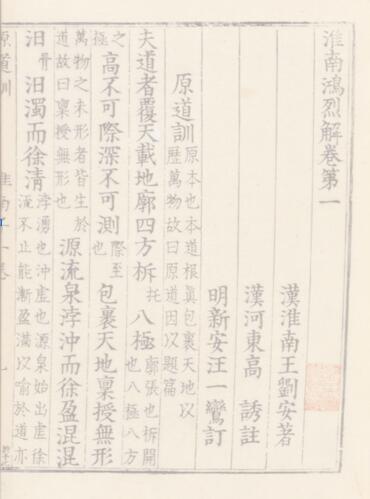 淮南鴻烈解卷第一
漢淮南王劉安著
漢河東高 誘註
明新安汪一鸞訂
原道訓 原本也本道根眞包裹天地以歷萬物故曰原道因以題篇
夫道者覆天載地廓四方柝托八極 廓張也柝開也八極八方
之極高不可際深不可測 際至也 包裹天地稟授無形
萬物之未形者皆生於道故曰稟授無形也 源流泉浡沖而徐盈混混
汩骨汩濁而徐清 浡湧也沖虛也源泉始出虛徐流不止能漸盈滿以喻於道亦
原道訓